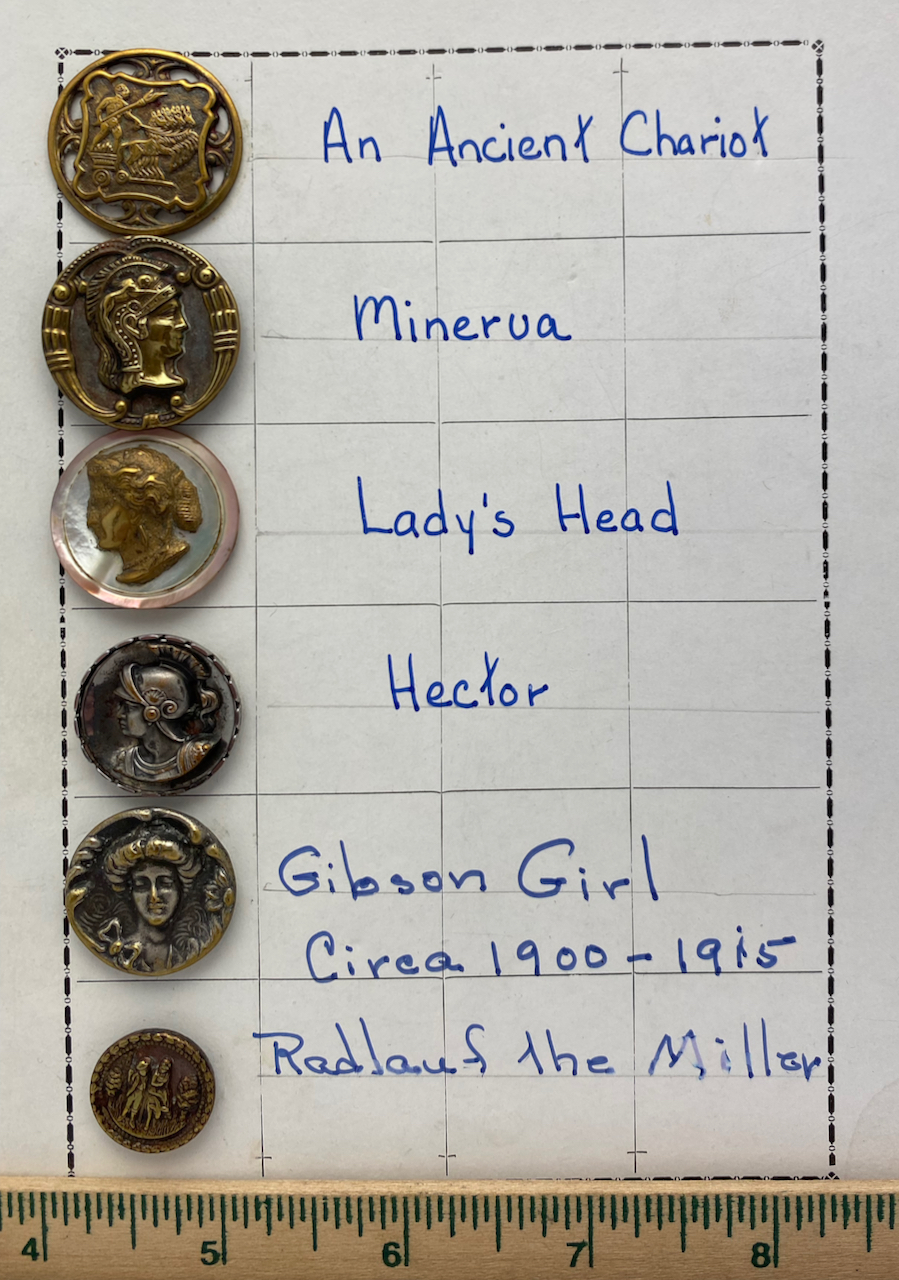 An Ancient Chariot
Minerva
Lady's Head
Hector
Gibson Girl
Circa 1900-1915
Radlauf the Miller
4 5 6 7 8